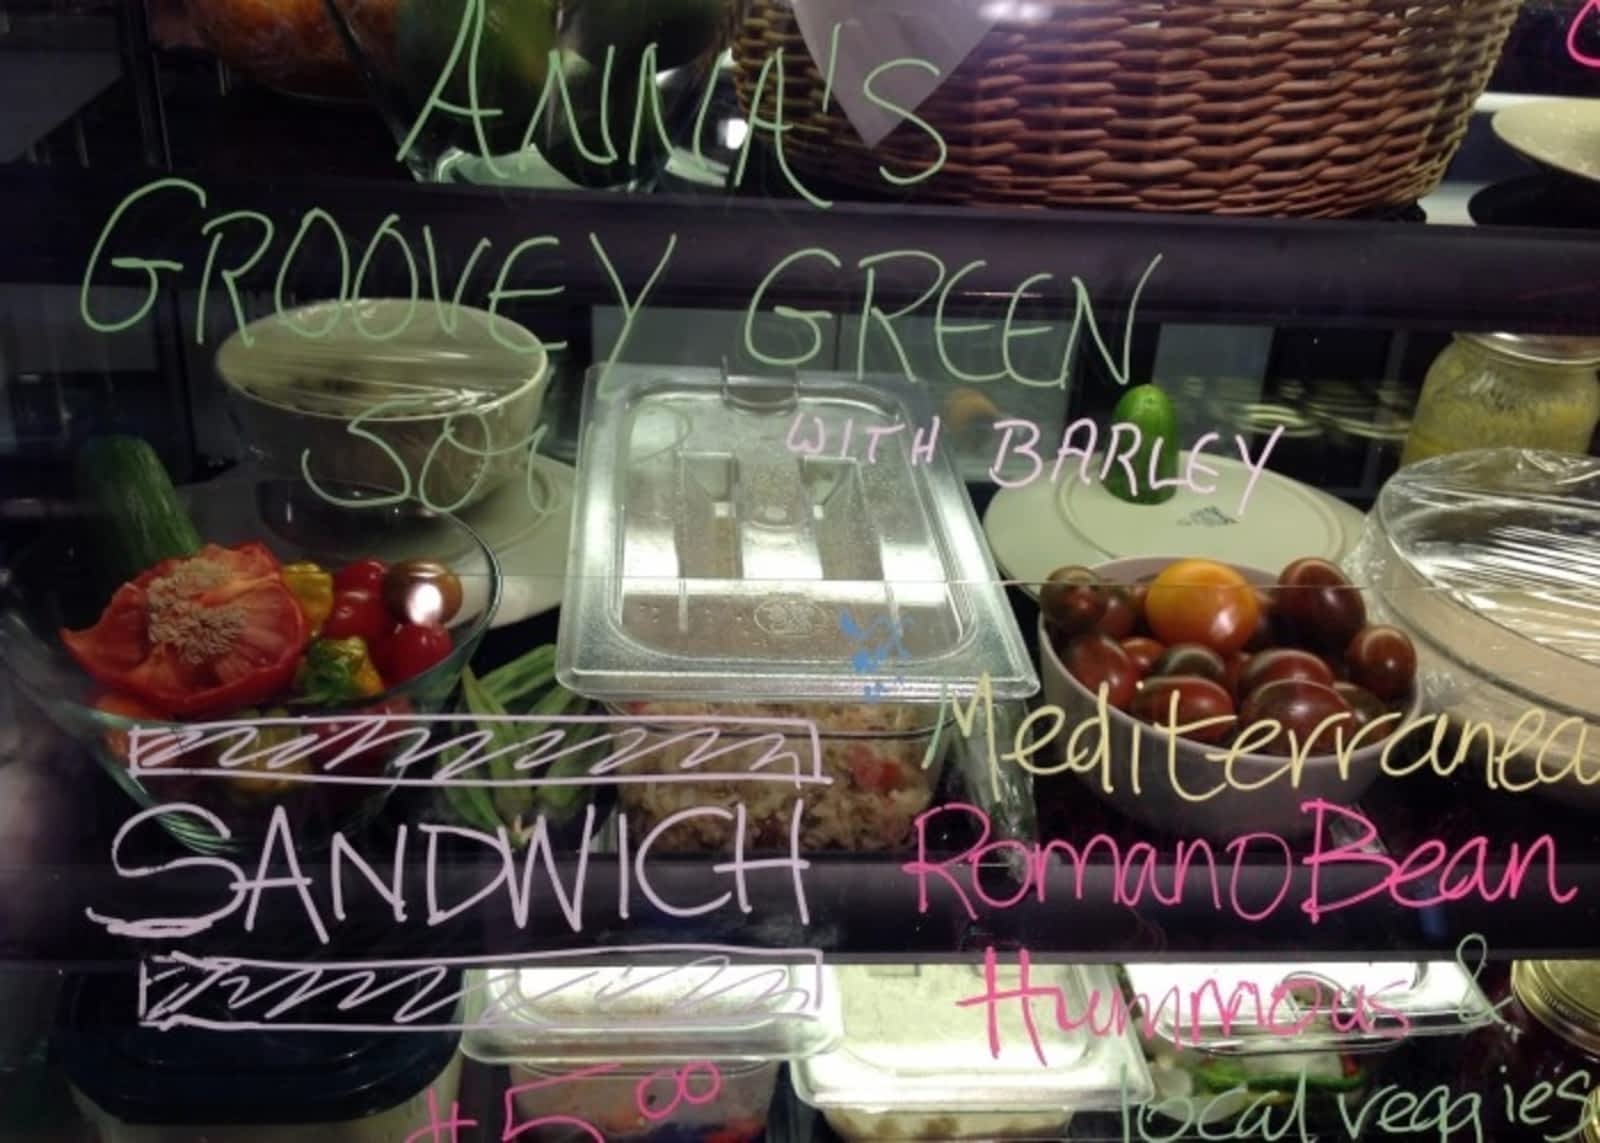 ANNA'S
GROOVEY GREEN
SOUP WITH BARLEY
SANDWICH
Mediterranea
Romano Bean
Hummous &
local veggies
$5.00